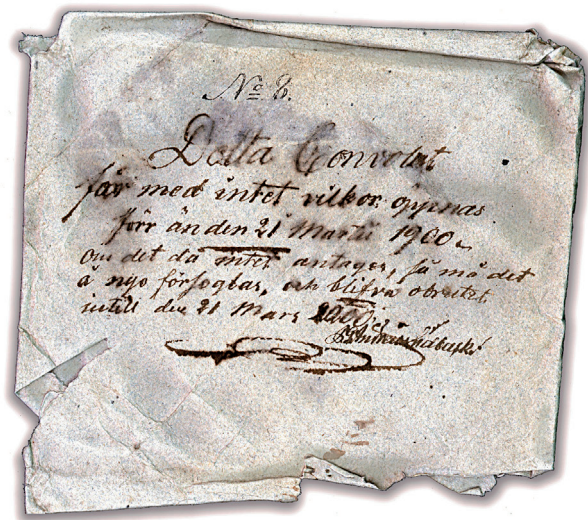 No 8.
Detta Convolut
får med intet vilkor öppnas
förr än den 21 Martii 1900
om det då intet antages, så må det
å nyo förseglas, och blifva obrutet
intill den 21 Mars 2000